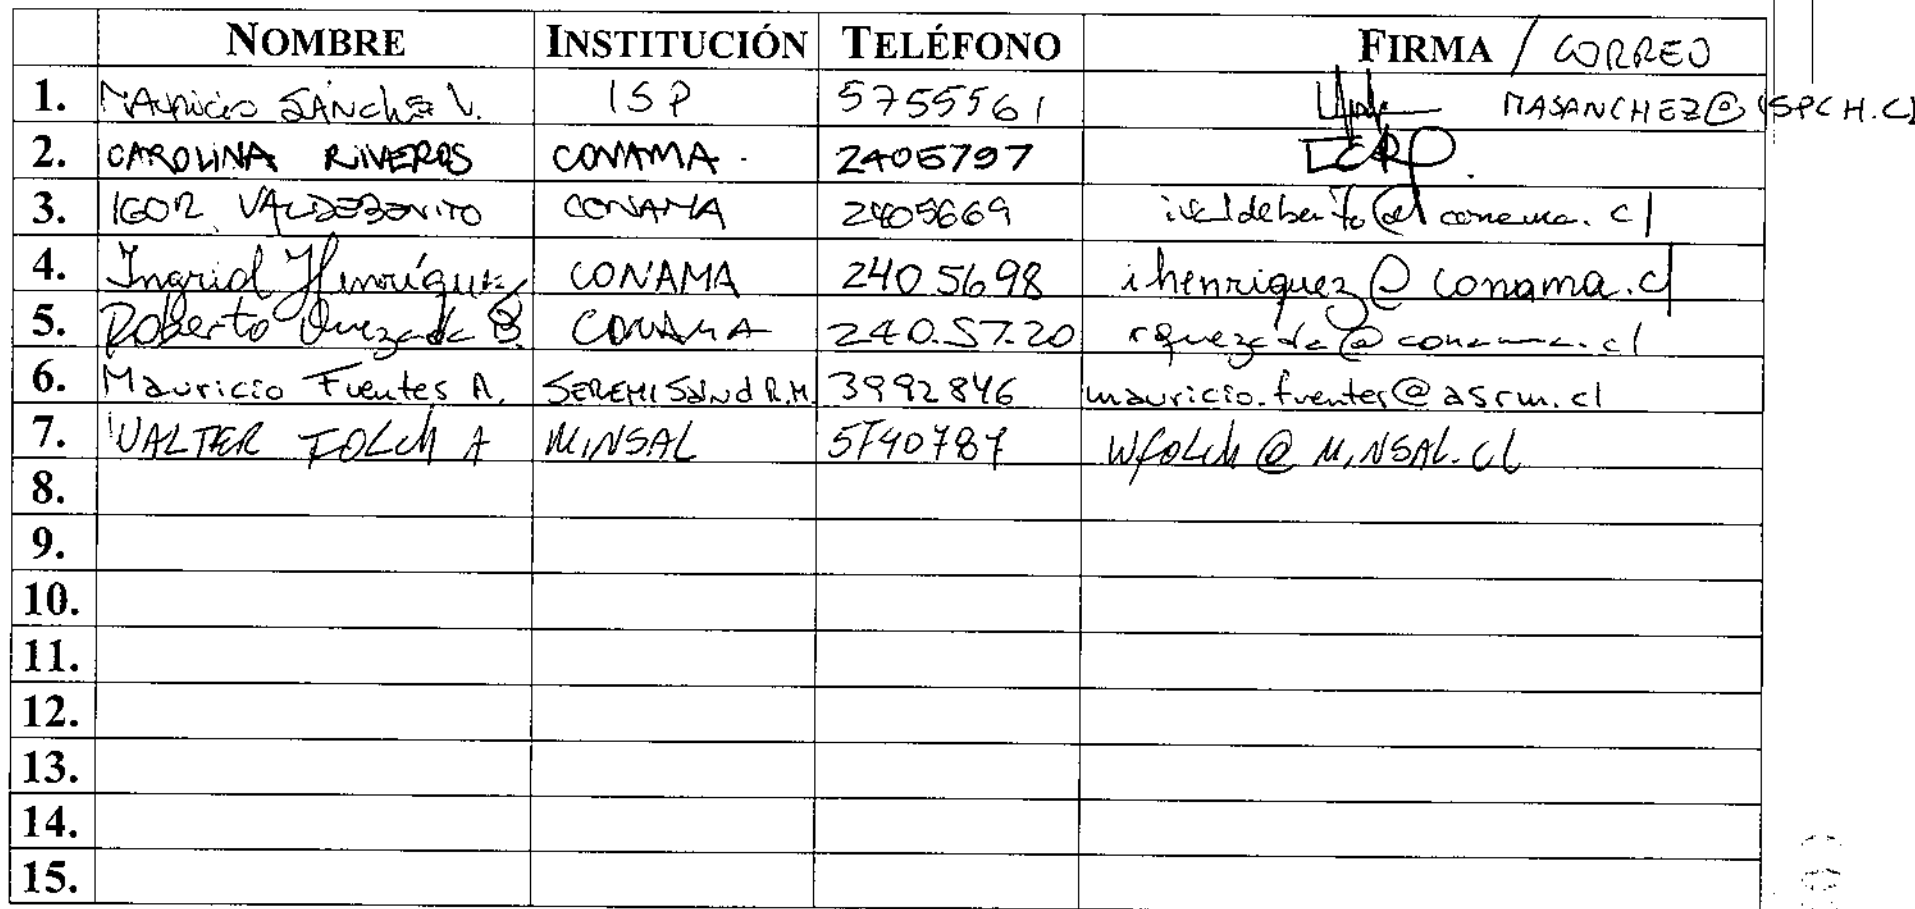 NOMBRE INSTITUCIÓN TELÉFONO FIRMA / CORREO
1. Mauricio Sánchez V. ISP 5755561 MASANCHEZ@ISPCH.CL
2. CAROLINA RIVEROS CONAMA. 2405797
3. IGOR VALDEBENITO CONAMA 2405669 ivaldebenito@conama.cl
4. Ingrid Henríquez CONAMA 240 5698 ihenriquez@conama.cl
5. Roberto Quezada B. CONAMA 240.57.20 rquezada@conama.cl
6. Mauricio Fuentes A. SEREMI Salud R.M. 3992846 mauricio.fuentes@asrm.cl
7. WALTER FOLCH A MINSAL 5740787 WfOLCH@MINSAL.Cl
8.
9.
10.
11.
12.
13.
14.
15.